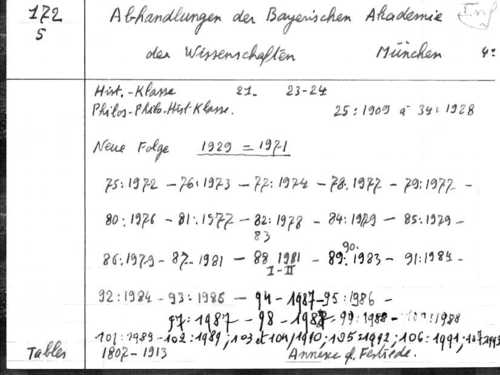 172
5
Abhandlungen der Bayerischen Akademie
der Wissenschaften München 4º
Hist.-Klasse 21- 23-24
Philos-Philo-Hist Klasse. 25:1909 à 34:1928
Neue Folge 1929 = 1971
75:1972 - 76:1973 - 77:1974 - 78:1977 - 79:1977 -
80:1976 - 81:1977 - 82:1978 - 84:1979 - 85:1979 -
83
90.
86:1979 - 87-1981 - 88 1981 - 89:1983 - 91:1984 -
I-II
92:1984 - 93:1986 - 94-1987-95:1986 -
97:1987 - 98-1988 - 99:1988 - :1988
101:1989-102:1989; 103 et 104/1990; 105=1992; 106:1991; 107
Tables 1807-1913 Annexe